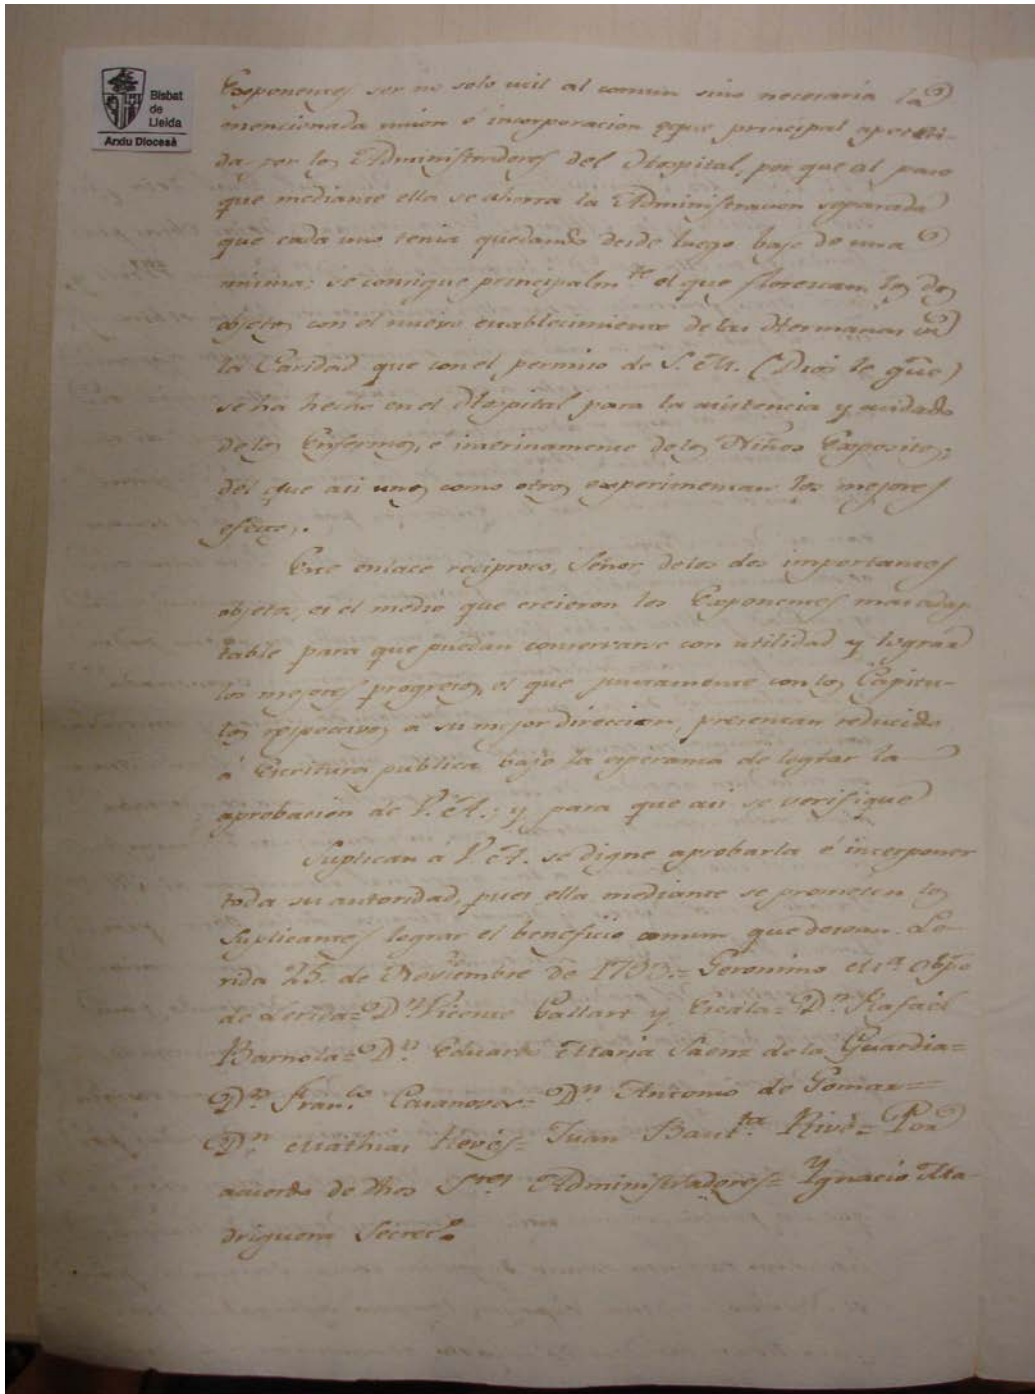 Bisbat
de
Lleida
Arxiu Diocesà
Exponentes ser no solo util al comun sino necesaria la
mencionada union é incorporacion que principal apeteci-
da por los Administradores del Hospital, por que al paso
que mediante ella se ahorra la Administracion separada
que cada uno tenia quedando desde luego bajo de una
misma: se consigue principalmte el que florescan los dos
objetos con el nuevo establecimiento de las Hermanas de
la Caridad que con el permiso de S. M. (Dios le gūe)
se ha hecho en el Hospital para la asistencia y cuidado
de los Enfermos, e interinamente de los Niños Expositos;
del que asi unos como otros experimentan los mejores
efectos.
Este enlace reciproco, Señor, de los dos importantes
objetos, es el medio que creieron los Exponentes mas adap
table para que puedan conservarse con utilidad y lograr
los mejores progresos, el que juntamente con los Capitu-
los respectivos a su mejor direccion, presentan reducido
á Escritura publica bajo la esperansa de lograr la
aprobacion de V. A.; y para que asi se verifique
Suplican á V. A. se digne aprobarla é interponer
toda su autoridad, pues ella mediante se prometen los
Suplicantes lograr el beneficio comun que desean. Le-
rida 25. de Noviembre de = Geronimo Ma. Obpo
de Lerida= Dn. Vicente Gallart y Escala= Dn. Rafael
Barnola= Dn. Eduardo Maria Saenz de la Guardia=
Dn. Franco. Casanovas= Dn. Antonio de Gomar=
Dn. Mathias = Juan Bautta. Rivé= Por
acuerdo de dhos Sres Administradores= Ygnacio Ma-
driguera Secreto.